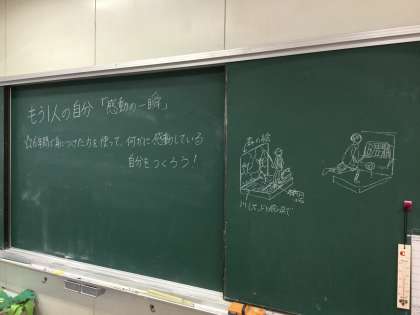 もう1人の自分「感動の一瞬」
☆6年間で身につけた力を使って、何かに感動している
自分をつくろう!
森の絵